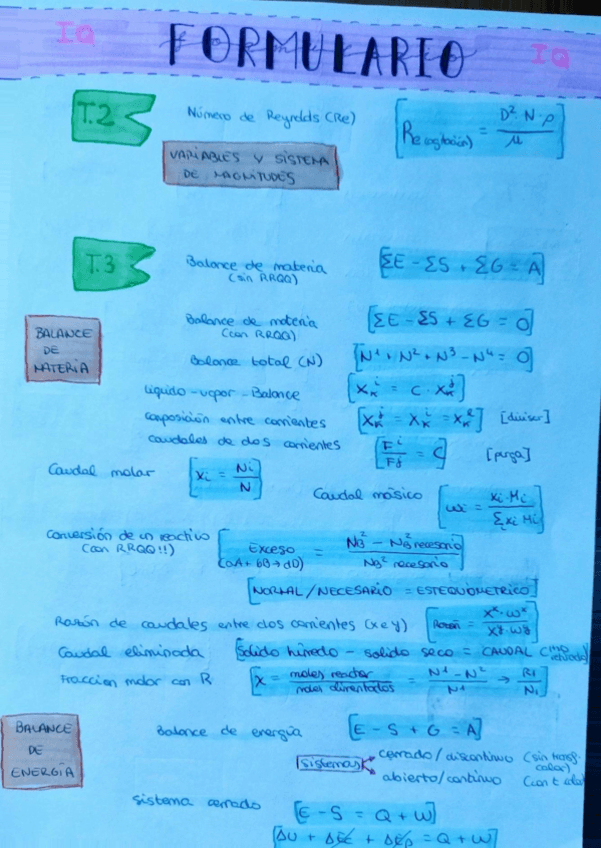 IQ FORMULARIO IQ
T.2 Número de Reynolds (Re) [Re (agitación) = D²·N·ρ / μ]
VARIABLES Y SISTEMA
DE MAGNITUDES
T.3 Balance de materia [ΣE - ΣS + ΣG = A]
(sin RRQQ)
Balance de materia [ΣE - ΣS + ΣG = 0]
(con RRQQ)
BALANCE
DE
MATERIA
Balance total (N) [N¹ + N² + N³ - N⁴ = 0]
líquido - vapor - Balance [X_K^i = C · X_K^j]
composición entre corrientes [X_K^j = X_K^i = X_K^l] [divisor]
caudales de dos corrientes [F^i / F^j = C] [purga]
Caudal molar [xi = Ni / N]
Caudal másico [wi = xi·Mi / Σxi·Mi]
Conversión de un reactivo [Exceso = NB² - NB² necesario / NB² necesario]
(con RRQQ!!) (aA + bB → dD)
[NORMAL/NECESARIO = ESTEQUIOMETRICO]
Razón de caudales entre dos corrientes (x e y) [Razón = X^x·W^x / X^y·W^y]
Caudal eliminada [sólido húmedo - sólido seco = CAUDAL
Fraccion molar con R [X = moles reacció / moles alimentados = N¹ - N² / N¹ → R1 / N1]
BALANCE
DE
ENERGÍA
Balance de energía [E - S + G = A]
sistemas cerrado/discontinuo (sin transf. calor)
abierto/continuo (con t calor)
sistema cerrado [E - S = Q + W]
[ΔU + ΔEc + ΔEp = Q + W]